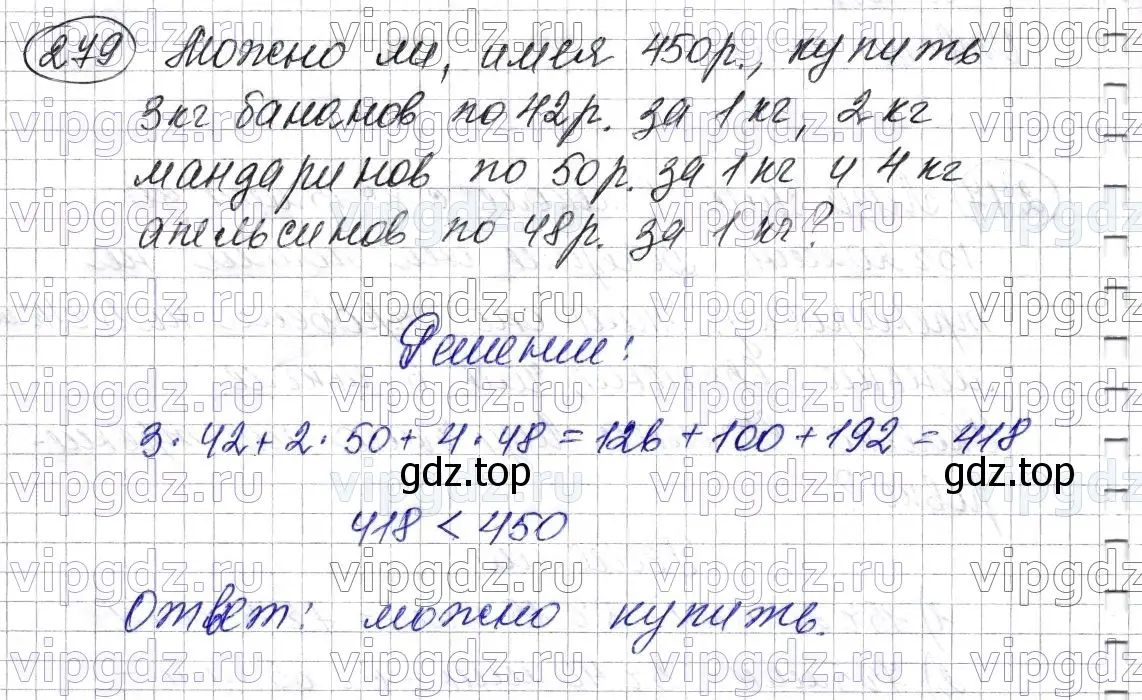 279 Можно ли, имея 450р., купить
3кг бананов по 42р. за 1кг, 2кг
мандаринов по 50р. за 1кг и 4кг
апельсинов по 48р. за 1кг?
Решение:
3·42+2·50+4·48=126+100+192=418
gdz.top gdz.top
418<450
Ответ: можно купить.